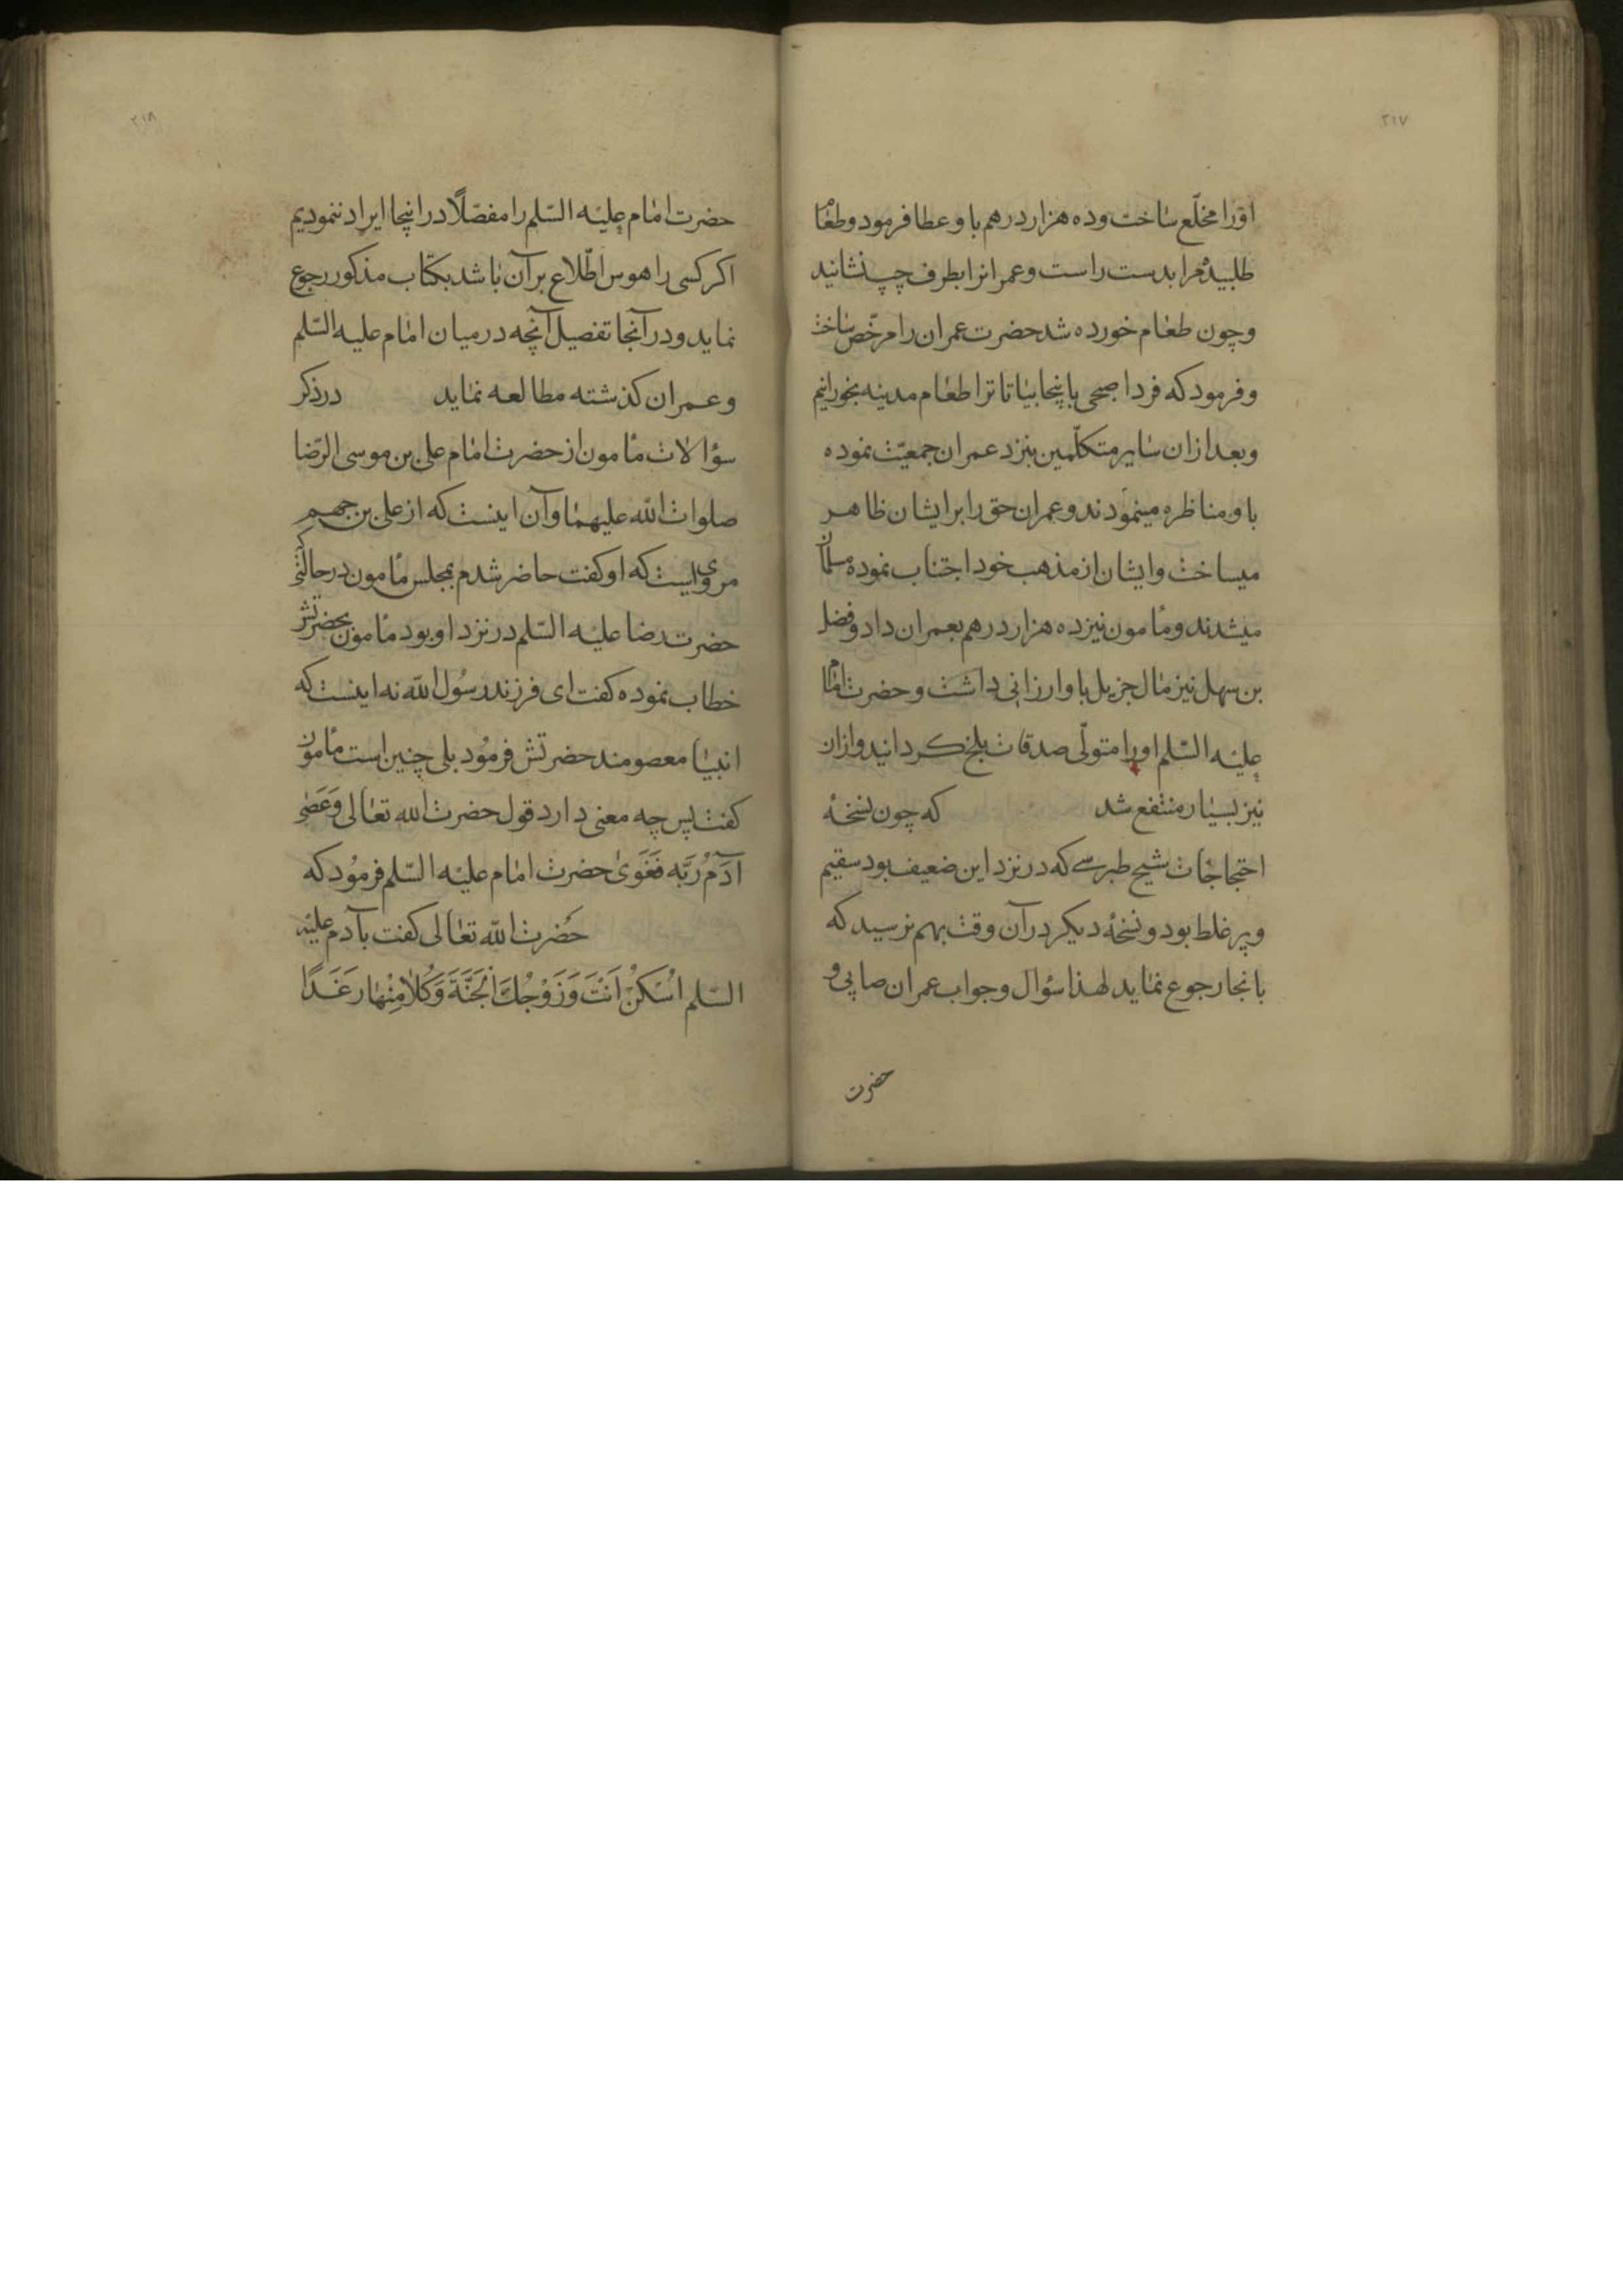 ۲۱۷
اورا مخلّع ساخت و ده هزار درهم باو عطا فرمود و طعام
طلبیده مرا بدست راست و عمرانرا بطرف چپ نشانید
و چون طعام خورده شد حضرت عمران را مرخّص ساخت
و فرمود که فردا صبحی باینجا بیا تا ترا طعام مدینه بخورانیم
و بعد ازان سایر متکلّمین بنزد عمران جمعیّت نموده
باو مناظره مینمودند و عمران حق را بر ایشان ظاهر
میساخت و ایشان از مذهب خود اجتناب نموده مسلمان
میشدند و مأمون نیز ده هزار درهم بعمران داد و فضل
بن سهل نیز مال جزیل باو ارزانی داشت و حضرت امام
علیه السّلم اورا متولّی صدقات بلخ کردانید و ازان
نیز بسیار منتفع شد که چون نسخهٔ
احتجاجات شیخ طبرسی که در نزد این ضعیف بود سقیم
و پر غلط بود و نسخهٔ دیکر در آن وقت بهم نرسید که
بانجا رجوع نماید لهذا سؤال و جواب عمران صابی و
حضرت
۲۱۸
حضرت امام علیه السّلم را مفصّلاً در اینجا ایراد ننمودیم
اکر کسی را هوس اطّلاع بر آن باشد بکتاب مذکور رجوع
نماید و در آنجا تفصیل آنچه در میان امام علیه السّلم
و عمران کذشته مطالعه نماید در ذکر
سؤالات مأمون از حضرت امام علی بن موسی الرّضا
صلوات الله علیهما و آن اینست که از علی بن جهم
مرویست که او کفت حاضر شدم بمجلس مأمون در حالتی که
حضرت رضا علیه السّلم در نزد او بود مأمون بحضرتش
خطاب نموده کفت ای فرزند رسول الله نه اینست که
انبیا معصومند حضرتش فرمود بلی چنین است مأمون
کفت پس چه معنی دارد قول حضرت الله تعالی وَعَصٰی
آدَمُ رَبَّه فَغَوَیٰ حضرت امام علیه السّلم فرمود که
حضرت الله تعالی کفت بآدم علیه
السّلم اُسْکُنْ اَنْتَ وَزَوْجُكَ الْجَنَّةَ وَکُلَا مِنْهَا رَغَدًا